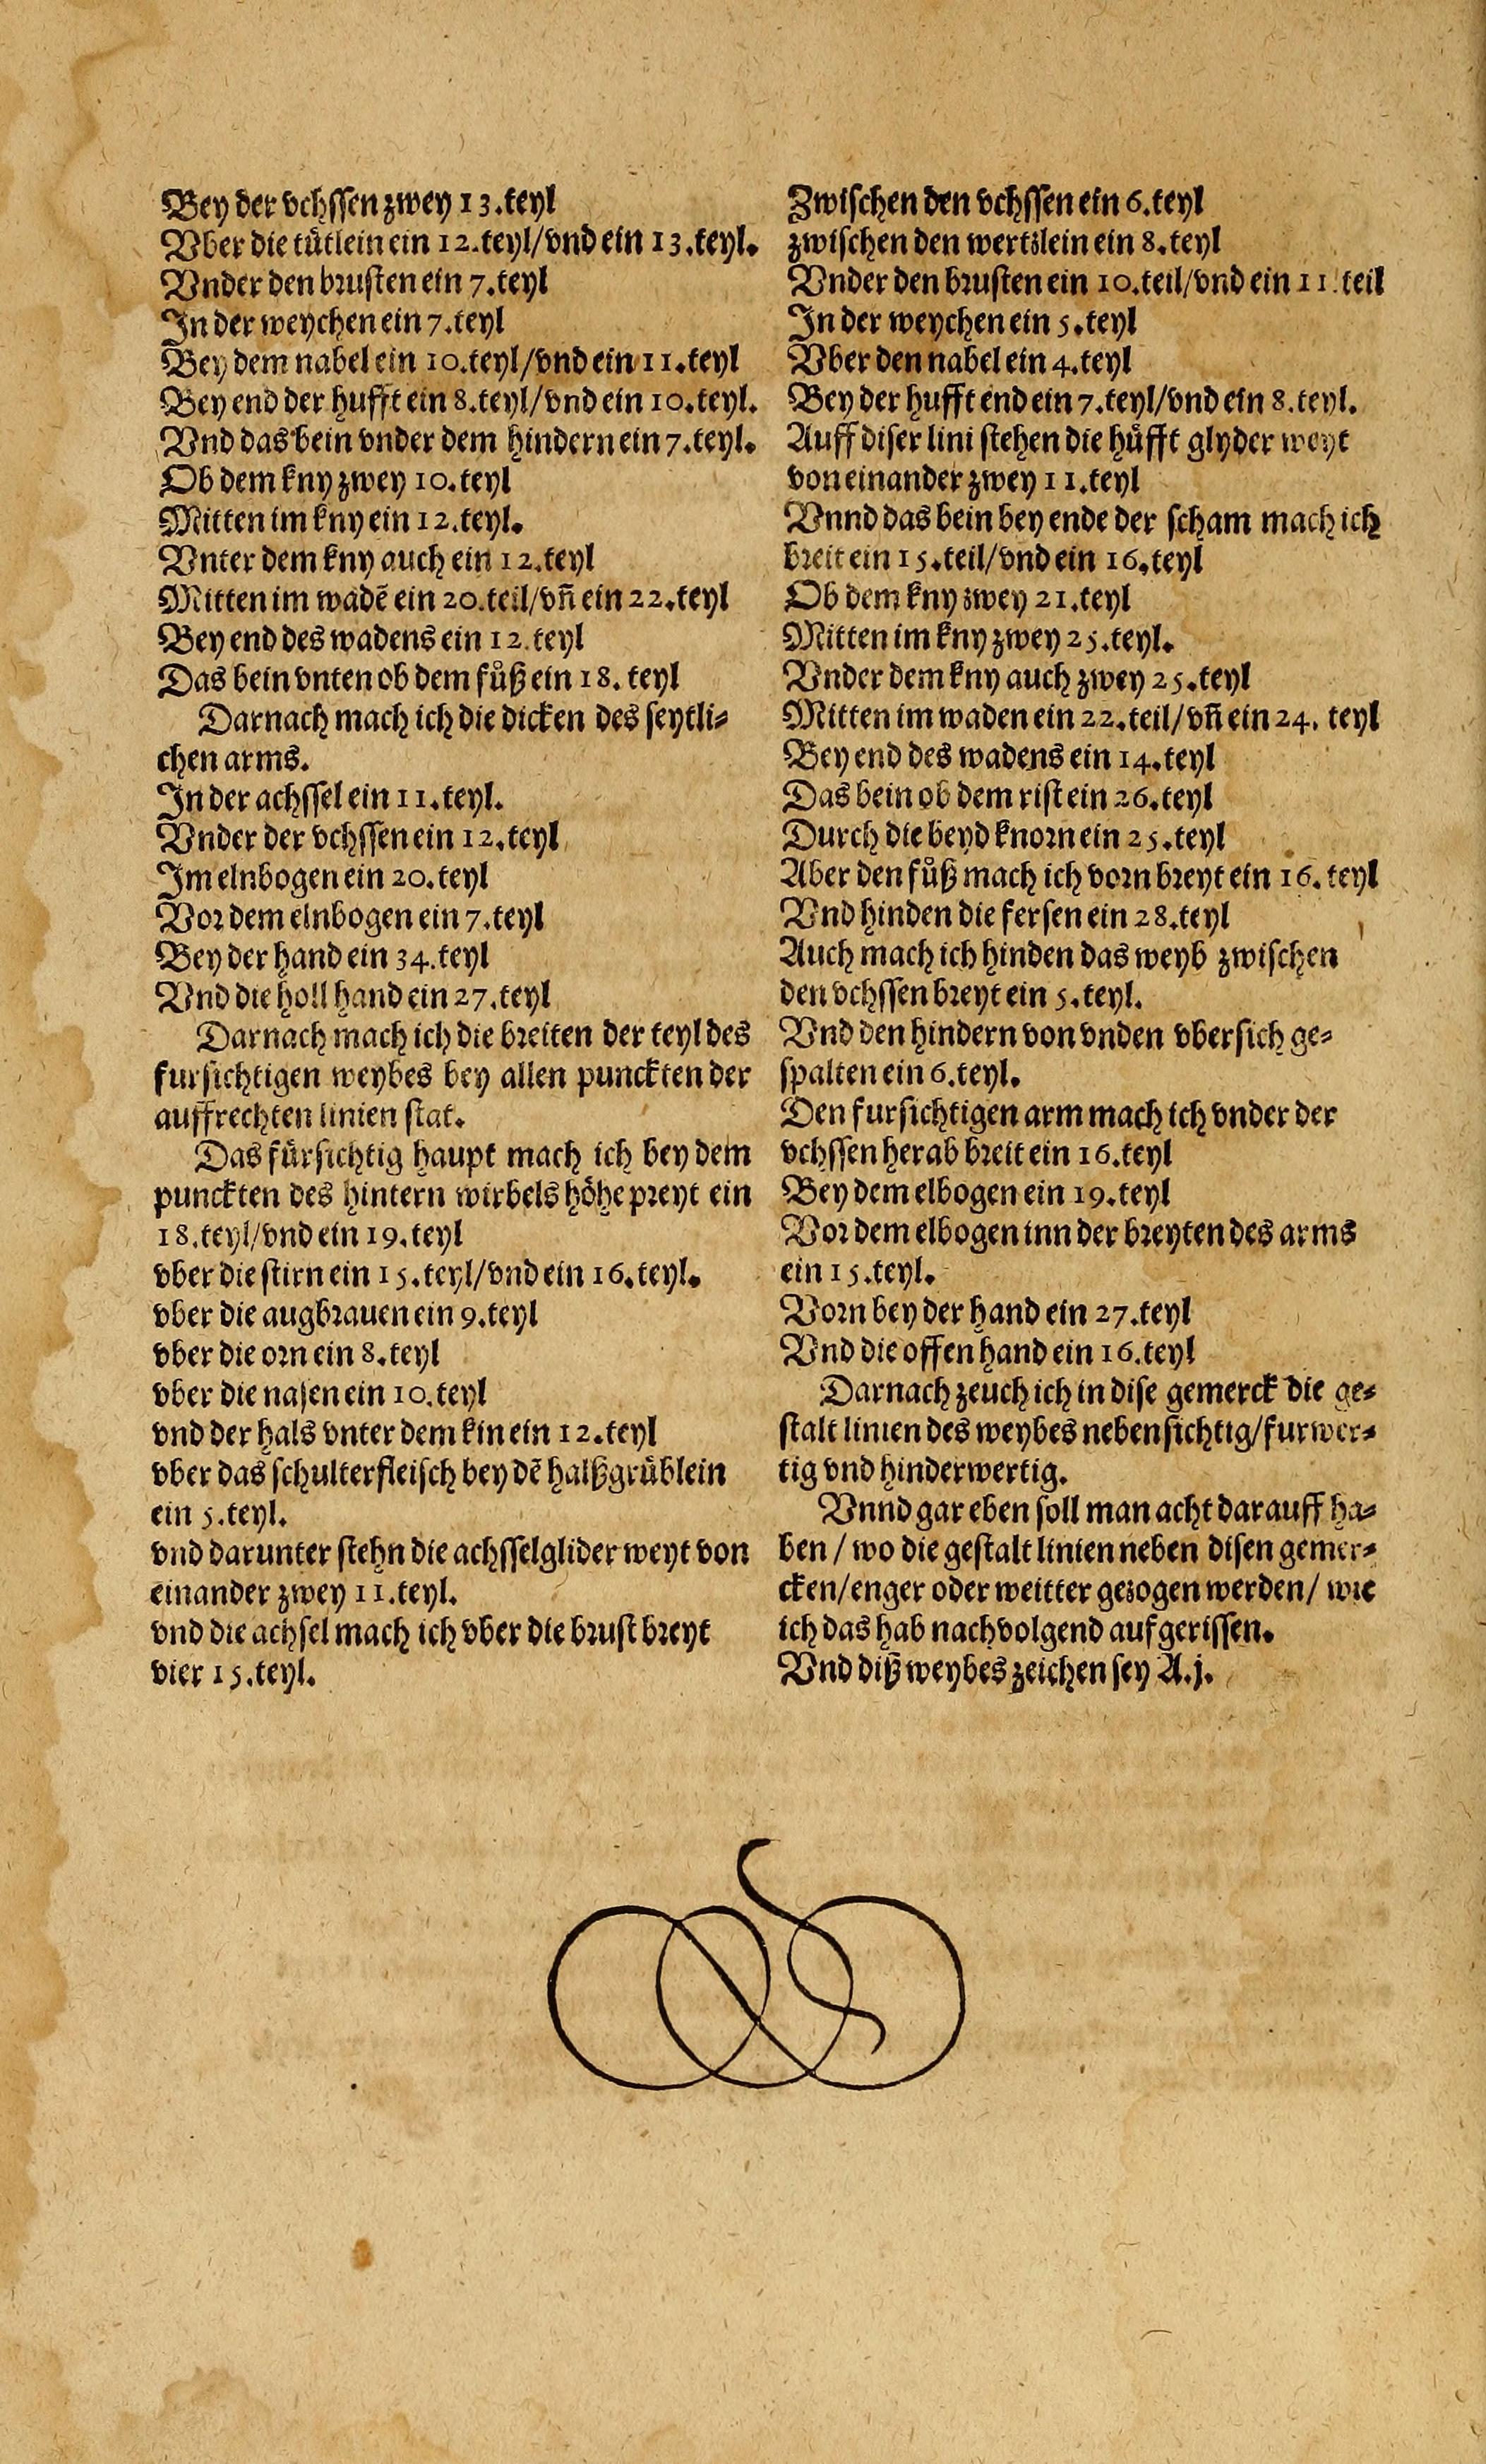 Bey der vchssen zwey 13.teyl
Vber die tütlein ein 12.teyl/vnd ein 13.teyl.
Vnder den brusten ein 7.teyl
In der weychen ein 7.teyl
Bey dem nabel ein 10.teyl/vnd ein 11.teyl
Bey end der hufft ein 8.teyl/vnd ein 10.teyl.
Vnd das bein vnder dem hindern ein 7.teyl.
Ob dem kny zwey 10.teyl
Mitten im kny ein 12.teyl.
Vnter dem kny auch ein 12.teyl
Mitten im wadē ein 20.teil/vn̄ ein 22.teyl
Bey end des wadens ein 12.teyl
Das bein vnten ob dem fůß ein 18. teyl
Darnach mach ich die dicken des seytli⸗
chen arms.
In der achssel ein 11.teyl.
Vnder der vchssen ein 12.teyl
Im elnbogen ein 20.teyl
Vor dem elnbogen ein 7.teyl
Bey der hand ein 34.teyl
Vnd die holl hand ein 27.teyl
Darnach mach ich die breiten der teyl des
fursichtigen weybes bey allen punckten der
auffrechten linien stat.
Das fürsichtig haupt mach ich bey dem
punckten des hintern wirbels höhe preyt ein
18.teyl/vnd ein 19.teyl
vber die stirn ein 15.teyl/vnd ein 16.teyl.
vber die augbrauen ein 9.teyl
vber die orn ein 8.teyl
vber die nasen ein 10.teyl
vnd der hals vnter dem kin ein 12.teyl
vber das schulterfleisch bey dē halßgrüblein
ein 5.teyl.
vnd darunter stehn die achsselglider weyt von
einander zwey 11.teyl.
vnd die achsel mach ich vber die brust breyt
vier 15.teyl.
Zwischen den vchssen ein 6.teyl
zwischen den wertzlein ein 8.teyl
Vnder den brusten ein 10.teil/vnd ein 11.teil
In der weychen ein 5.teyl
Vber den nabel ein 4.teyl
Bey der hufft end ein 7.teyl/vnd ein 8.teyl.
Auff diser lini stehen die hüfft glyder weyt
von einander zwey 11.teyl
Vnnd das bein bey ende der scham mach ich
breit ein 15.teil/vnd ein 16.teyl
Ob dem kny zwey 21.teyl
Mitten im kny zwey 25.teyl.
Vnder dem kny auch zwey 25.teyl
Mitten im waden ein 22.teil/vn̄ ein 24. teyl
Bey end des wadens ein 14.teyl
Das bein ob dem rist ein 26.teyl
Durch die beyd knorn ein 25.teyl
Aber den fůß mach ich vorn breyt ein 16. teyl
Vnd hinden die fersen ein 28.teyl
Auch mach ich hinden das weyb zwischen
den vchssen breyt ein 5.teyl.
Vnd den hindern von vnden vbersich ge⸗
spalten ein 6.teyl.
Den fursichtigen arm mach ich vnder der
vchssen herab breit ein 16.teyl
Bey dem elbogen ein 19.teyl
Vor dem elbogen inn der breyten des arms
ein 15.teyl.
Vorn bey der hand ein 27.teyl
Vnd die offen hand ein 16.teyl
Darnach zeuch ich in dise gemerck die ge⸗
stalt linien des weybes nebensichtig/furwer⸗
tig vnd hinderwertig.
Vnnd gar eben soll man acht darauff ha⸗
ben / wo die gestalt linien neben disen gemer⸗
cken/enger oder weitter gezogen werden/ wie
ich das hab nachvolgend aufgerissen.
Vnd diß weybes zeichen sey A.j.